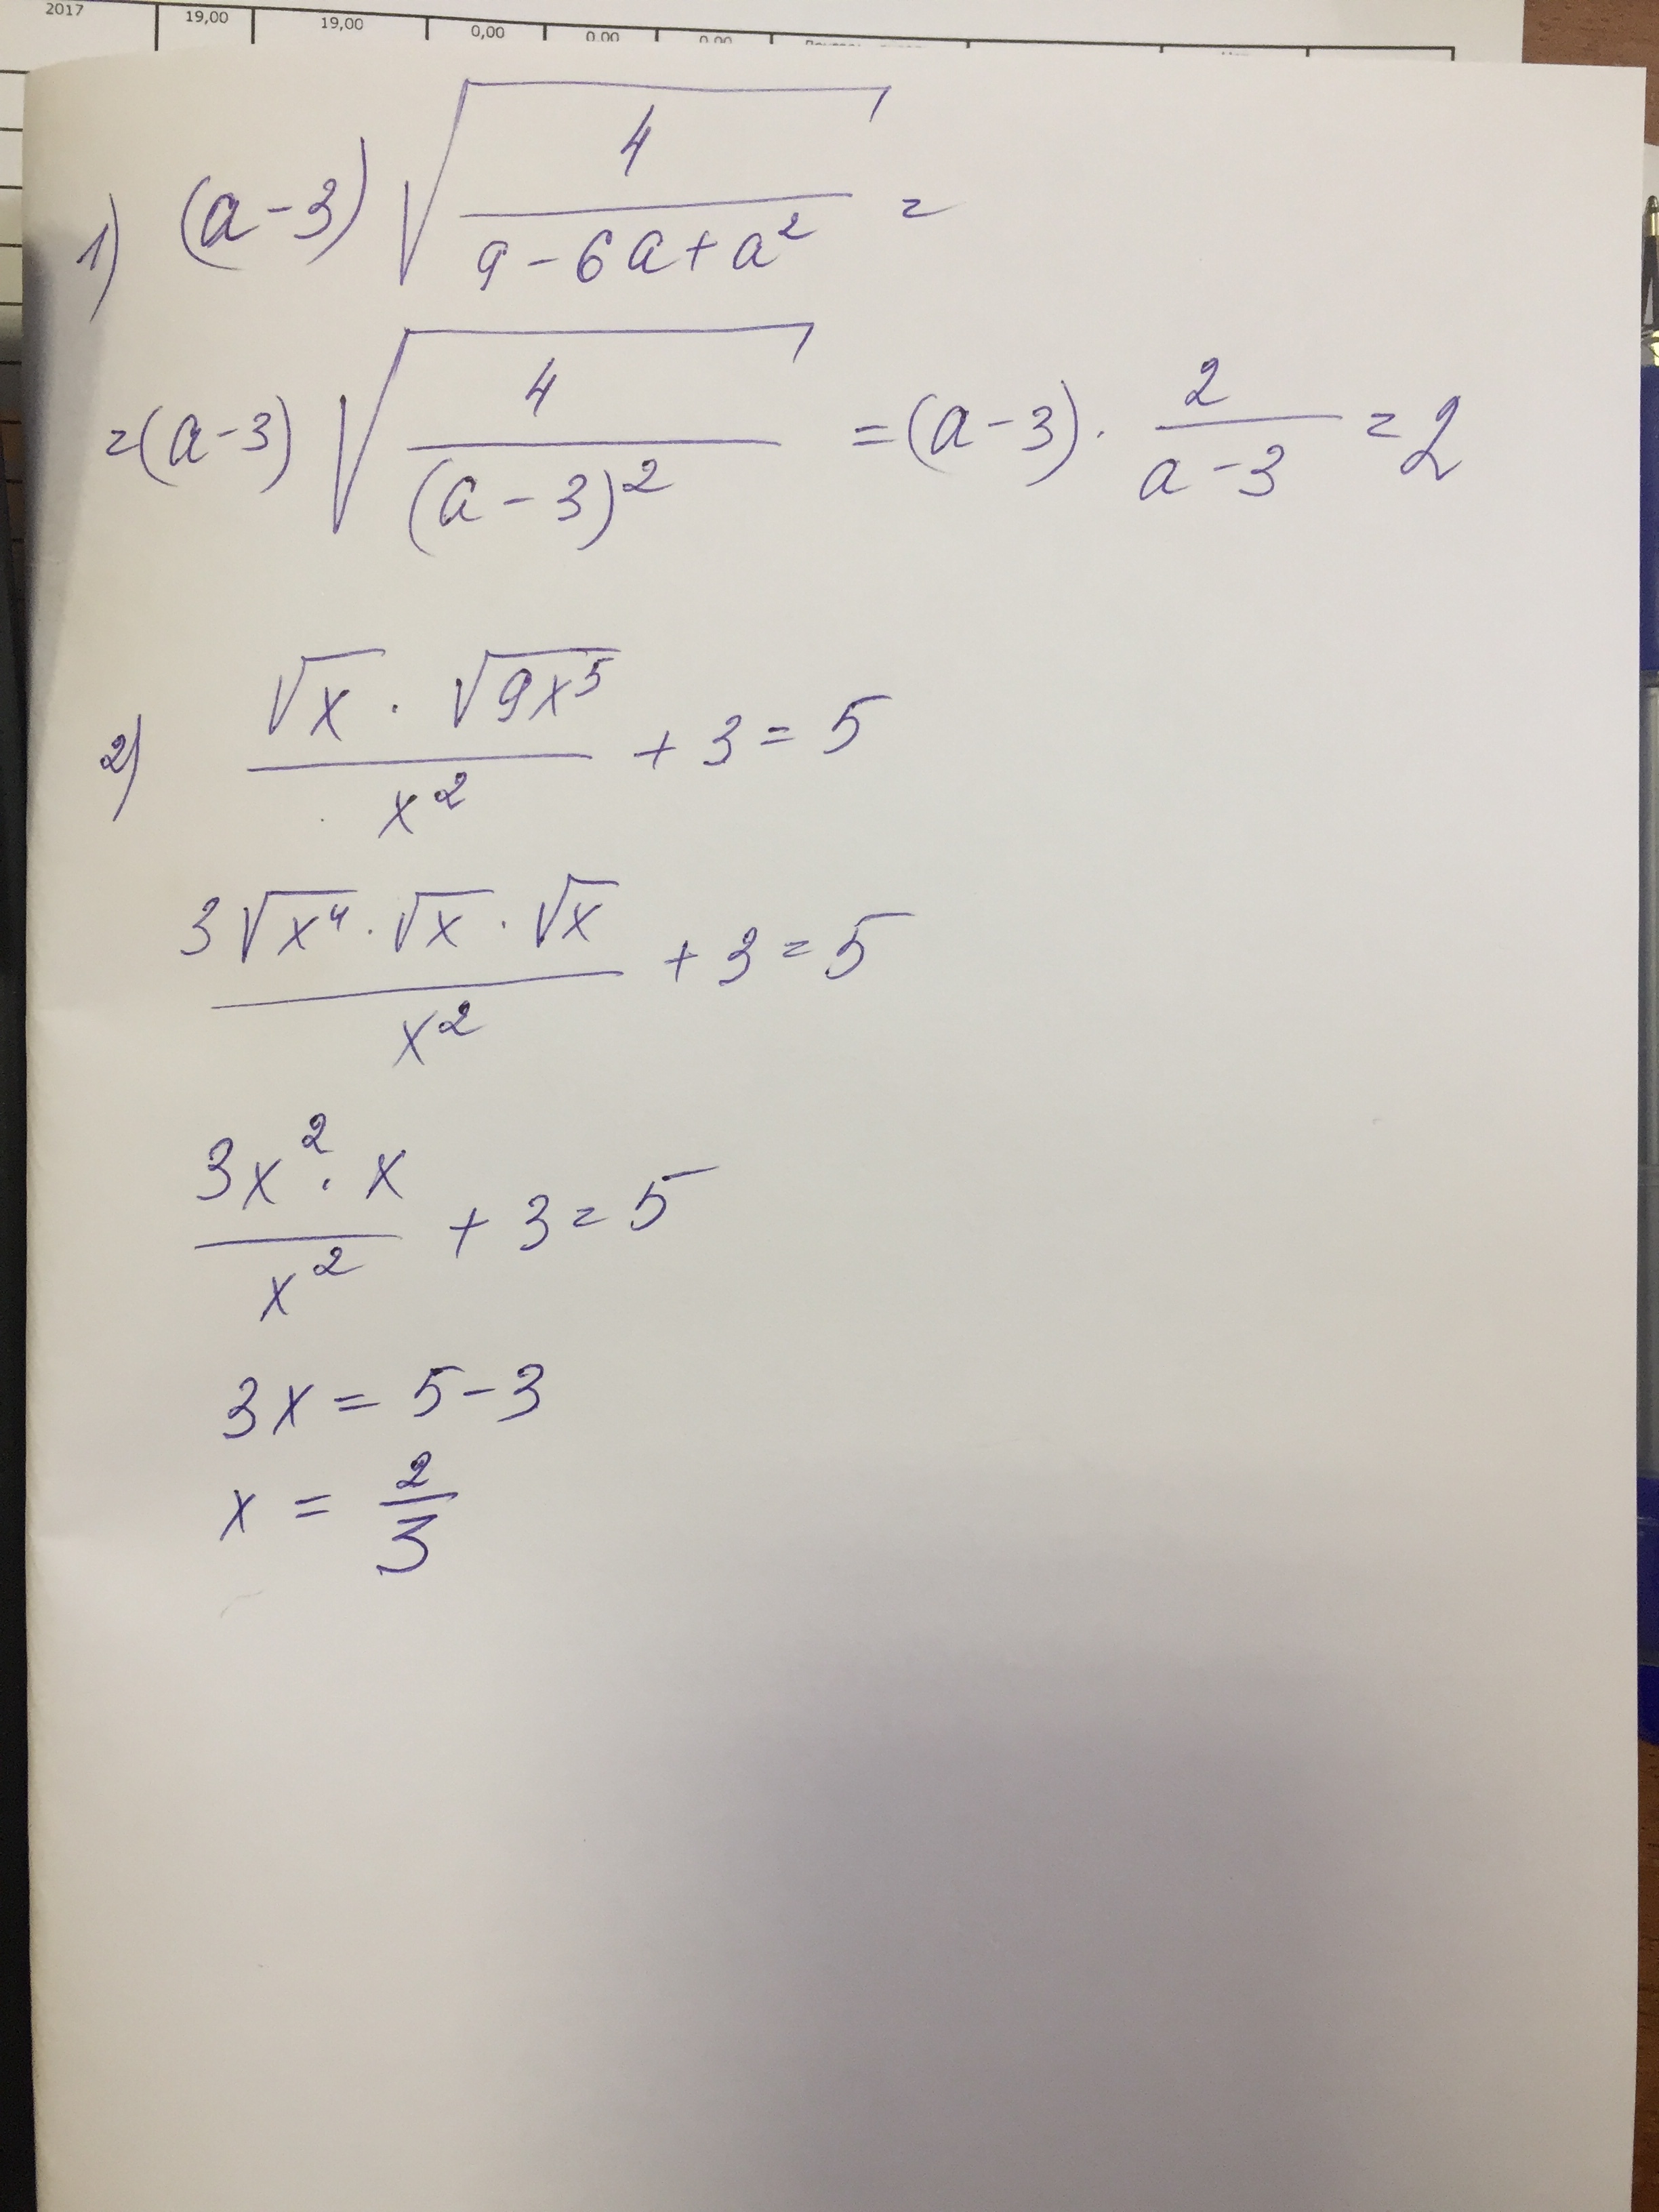 2017 19,00 19,00 0,00 0,00 0,00
1) (a-3) √(4/(9-6a+a²)) =
=(a-3) √(4/(a-3)²) =(a-3)· 2/(a-3) = 2
2) (√x · √(9x⁵))/x² + 3 = 5
(3√x⁴ · √x · √x)/x² + 3 = 5
(3x² · x)/x² + 3 = 5
3x = 5-3
x = 2/3